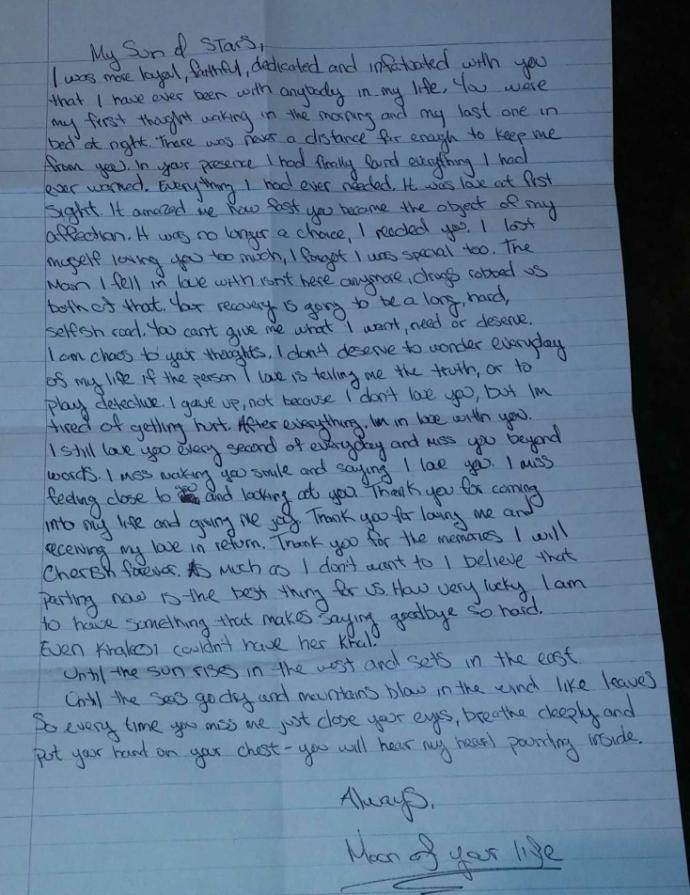 My Sun & Stars,
I was more loyal, faithful, dedicated and infatuated with you
that I have ever been with anybody in my life. You were
my first thought waking in the morning and my last one in
bed at night. There was never a distance far enough to keep me
from you. In your presence I had finally found everything I had
ever wanted. Everything I had ever needed. It was love at first
sight. It amazed me how fast you became the object of my
affection. It was no longer a choice, I needed you. I lost
myself loving you too much, I forgot I was special too. The
Man I fell in love with isnt here anymore, drugs robbed us
both of that. Your recovery is going to be a long, hard,
selfish road. You cant give me what I want, need or deserve.
I am chaos to your thoughts. I don't deserve to wonder everyday
of my life if the person I love is telling me the truth, or to
play detective. I gave up, not because I don't love you, but Im
tired of getting hurt. After everything, Im in love with you.
I still love you every second of everyday and miss you beyond
words. I miss making you smile and saying I love you. I miss
feeling close to you and looking at you. Thank you for coming
into my life and giving me joy. Thank you for loving me and
receiving my love in return. Thank you for the memories I will
Cherish forever. As much as I don't want to I believe that
parting now is the best thing for us. How very lucky I am
to have something that makes saying goodbye so hard.
Even Khaleesi couldn't have her Khal.
Until the sun rises in the west and sets in the east
Until the seas go dry and mountains blow in the wind like leaves
So every time you miss me just close your eyes, breathe deeply and
put your hand on your chest - you will hear my heart pounding inside.
Always,
Moon of your life